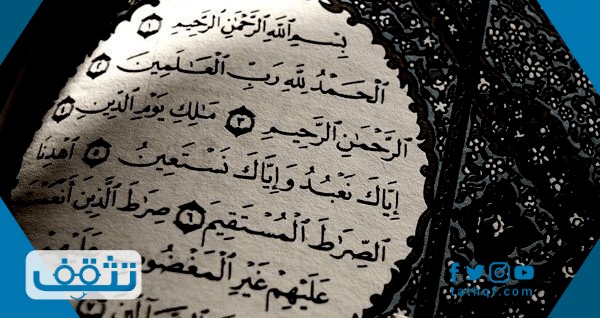 بِسْمِ ٱللَّهِ ٱلرَّحْمَٰنِ ٱلرَّحِيمِ ١
ٱلْحَمْدُ لِلَّهِ رَبِّ ٱلْعَٰلَمِينَ ٢
ٱلرَّحْمَٰنِ ٱلرَّحِيمِ ٣ مَٰلِكِ يَوْمِ ٱلدِّينِ ٤
إِيَّاكَ نَعْبُدُ وَإِيَّاكَ نَسْتَعِينُ ٥ ٱهْدِنَا
ٱلصِّرَٰطَ ٱلْمُسْتَقِيمَ ٦ صِرَٰطَ ٱلَّذِينَ
عَلَيْهِمْ غَيْرِ ٱلْمَغْضُوبِ
تثقف
tathqf.com